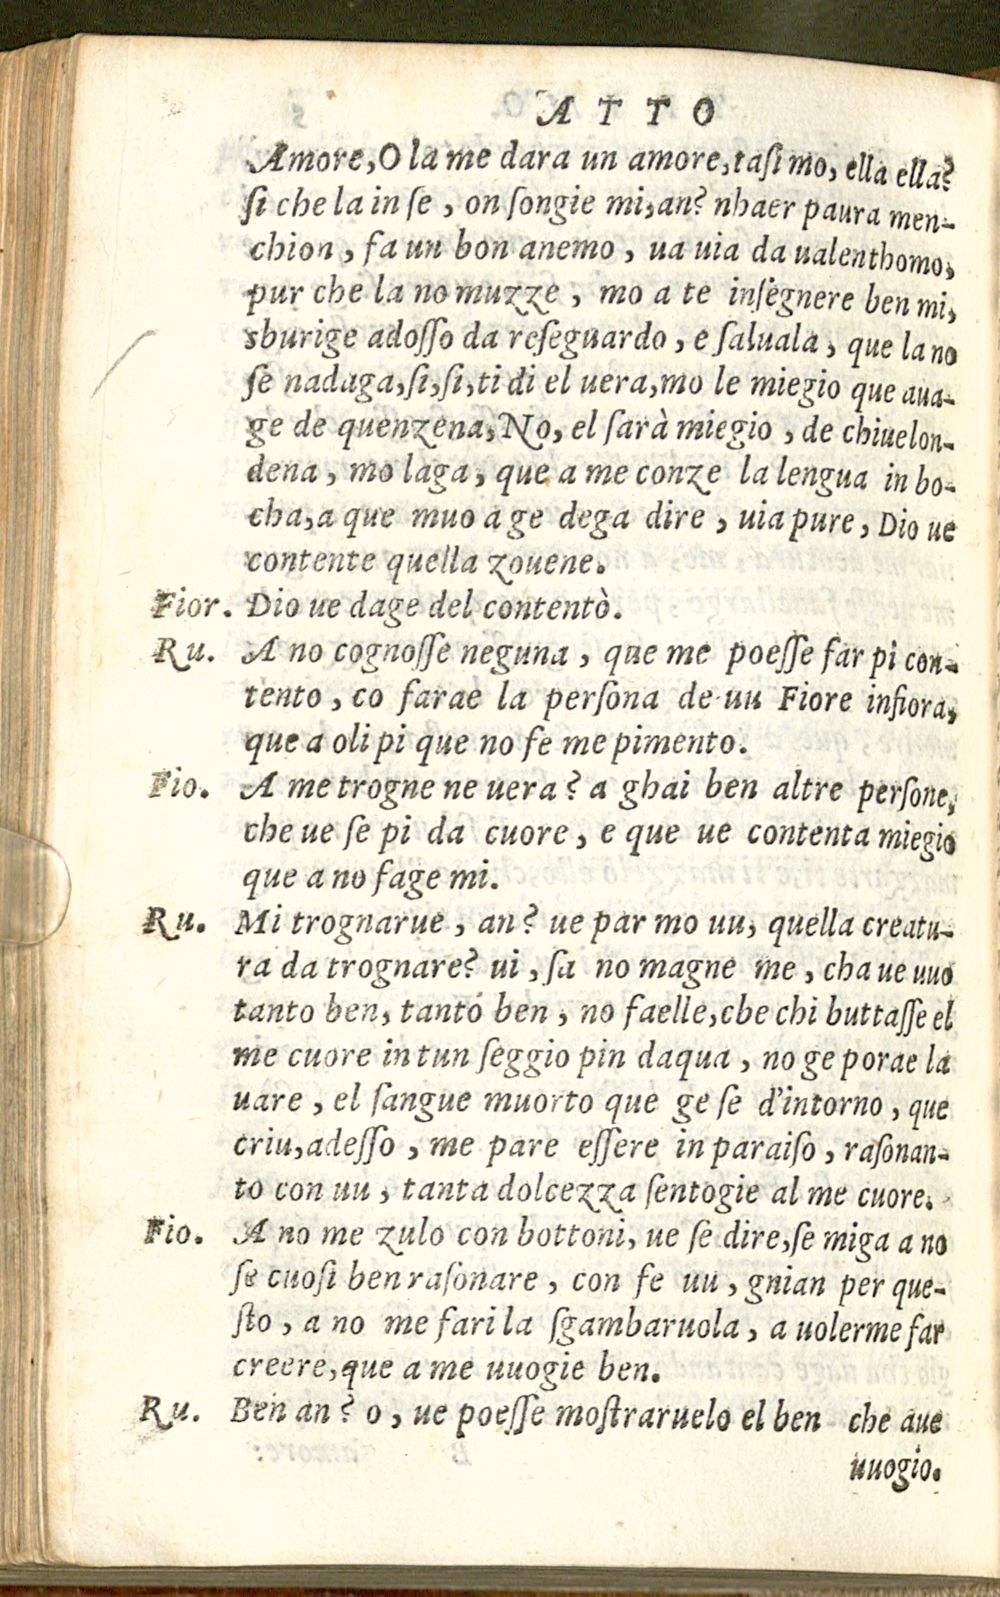 ATTO
Amore, O la me dara un amore, taſi mo, ella ella?
ſi che la in ſe, on ſongie mi, an? nhaer paura men-
chion, fa un bon anemo, ua uia da ualenthomo,
pur che la no muzze, mo a te inſegnere ben mi,
sburige adoſſo da reſeguardo, e ſaluala, que la no
ſe nadaga, ſi, ſi, ti di el uera, mo le miegio que aua-
ge de quenzena, No, el ſarà miegio, de chiuelon-
dena, mo laga, que a me conze la lengua in bo-
cha, a que muo a ge dega dire, uia pure, Dio ue
contente quella zouene.
Fior. Dio ue dage del contentò.
Ru. A no cognoſſe neguna, que me poeſſe far pi con-
tento, co farae la perſona de uu Fiore infiora,
que a oli pi que no fe me pimento.
Fio. A me trogne ne uera? a ghai ben altre perſone,
che ue ſe pi da cuore, e que ue contenta miegio
que a no fage mi.
Ru. Mi trognarue, an? ue par mo uu, quella creatu-
ra da trognare? ui, ſa no magne me, cha ue uuo
tanto ben, tantó ben, no faelle, che chi buttaſſe el
me cuore in tun ſeggio pin daqua, no ge porae la
uare, el ſangue muorto que ge ſe d'intorno, que
criu, adeſſo, me pare eſſere in paraiſo, raſonan-
to con uu, tanta dolcezza ſentogie al me cuore.
Fio. A no me zulo con bottoni, ue ſe dire, ſe miga a no
ſe cuoſi ben raſonare, con fe uu, gnian per que-
ſto, a no me fari la ſgambaruola, a uolerme far
creere, que a me uuogie ben.
Ru. Ben an? o, ue poeſſe moſtraruelo el ben che aue
uuogio.